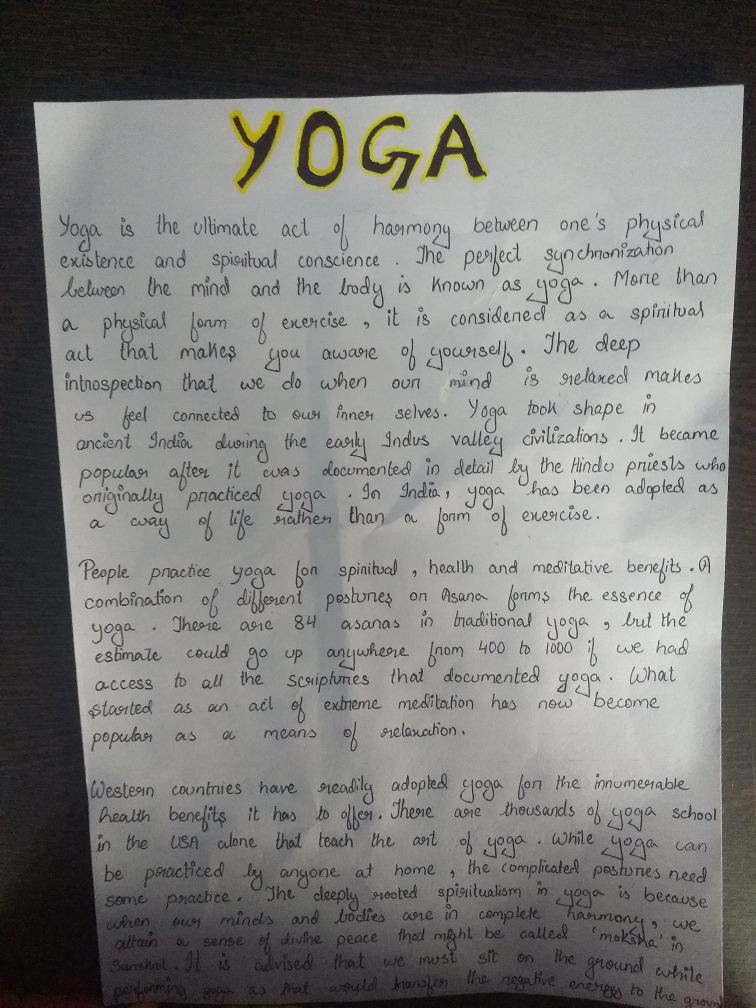 YOGA
Yoga is the ultimate act of harmony between one's physical
existence and spiritual conscience. The perfect synchronization
between the mind and the body is known as yoga. More than
a physical form of exercise, it is considered as a spiritual
act that makes you aware of yourself. The deep
introspection that we do when our mind is relaxed makes
us feel connected to our inner selves. Yoga took shape in
ancient India during the early Indus valley civilizations. It became
popular after it was documented in detail by the Hindu priests who
originally practiced yoga. In India, yoga has been adopted as
a way of life rather than a form of exercise.
People practice yoga for spiritual, health and meditative benefits. A
combination of different postures or Asana forms the essence of
yoga. There are 84 asanas in traditional yoga, but the
estimate could go up anywhere from 400 to 1000 if we had
access to all the scriptures that documented yoga. What
started as an act of extreme meditation has now become
popular as a means of relaxation.
Western countries have readily adopted yoga for the innumerable
health benefits it has to offer. There are thousands of yoga school
in the USA alone that teach the art of yoga. While yoga can
be practiced by anyone at home, the complicated postures need
some practice. The deeply rooted spiritualism in yoga is because
when our minds and bodies are in complete harmony, we
attain a sense of divine peace that might be called 'moksha' in
Sanskrit. It is advised that we must sit on the ground while
performing yoga as that would transfer the negative energy to the ground